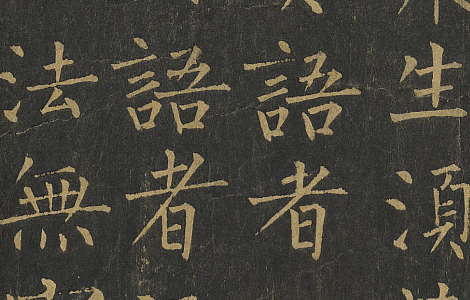 生須
語者
語者
法無